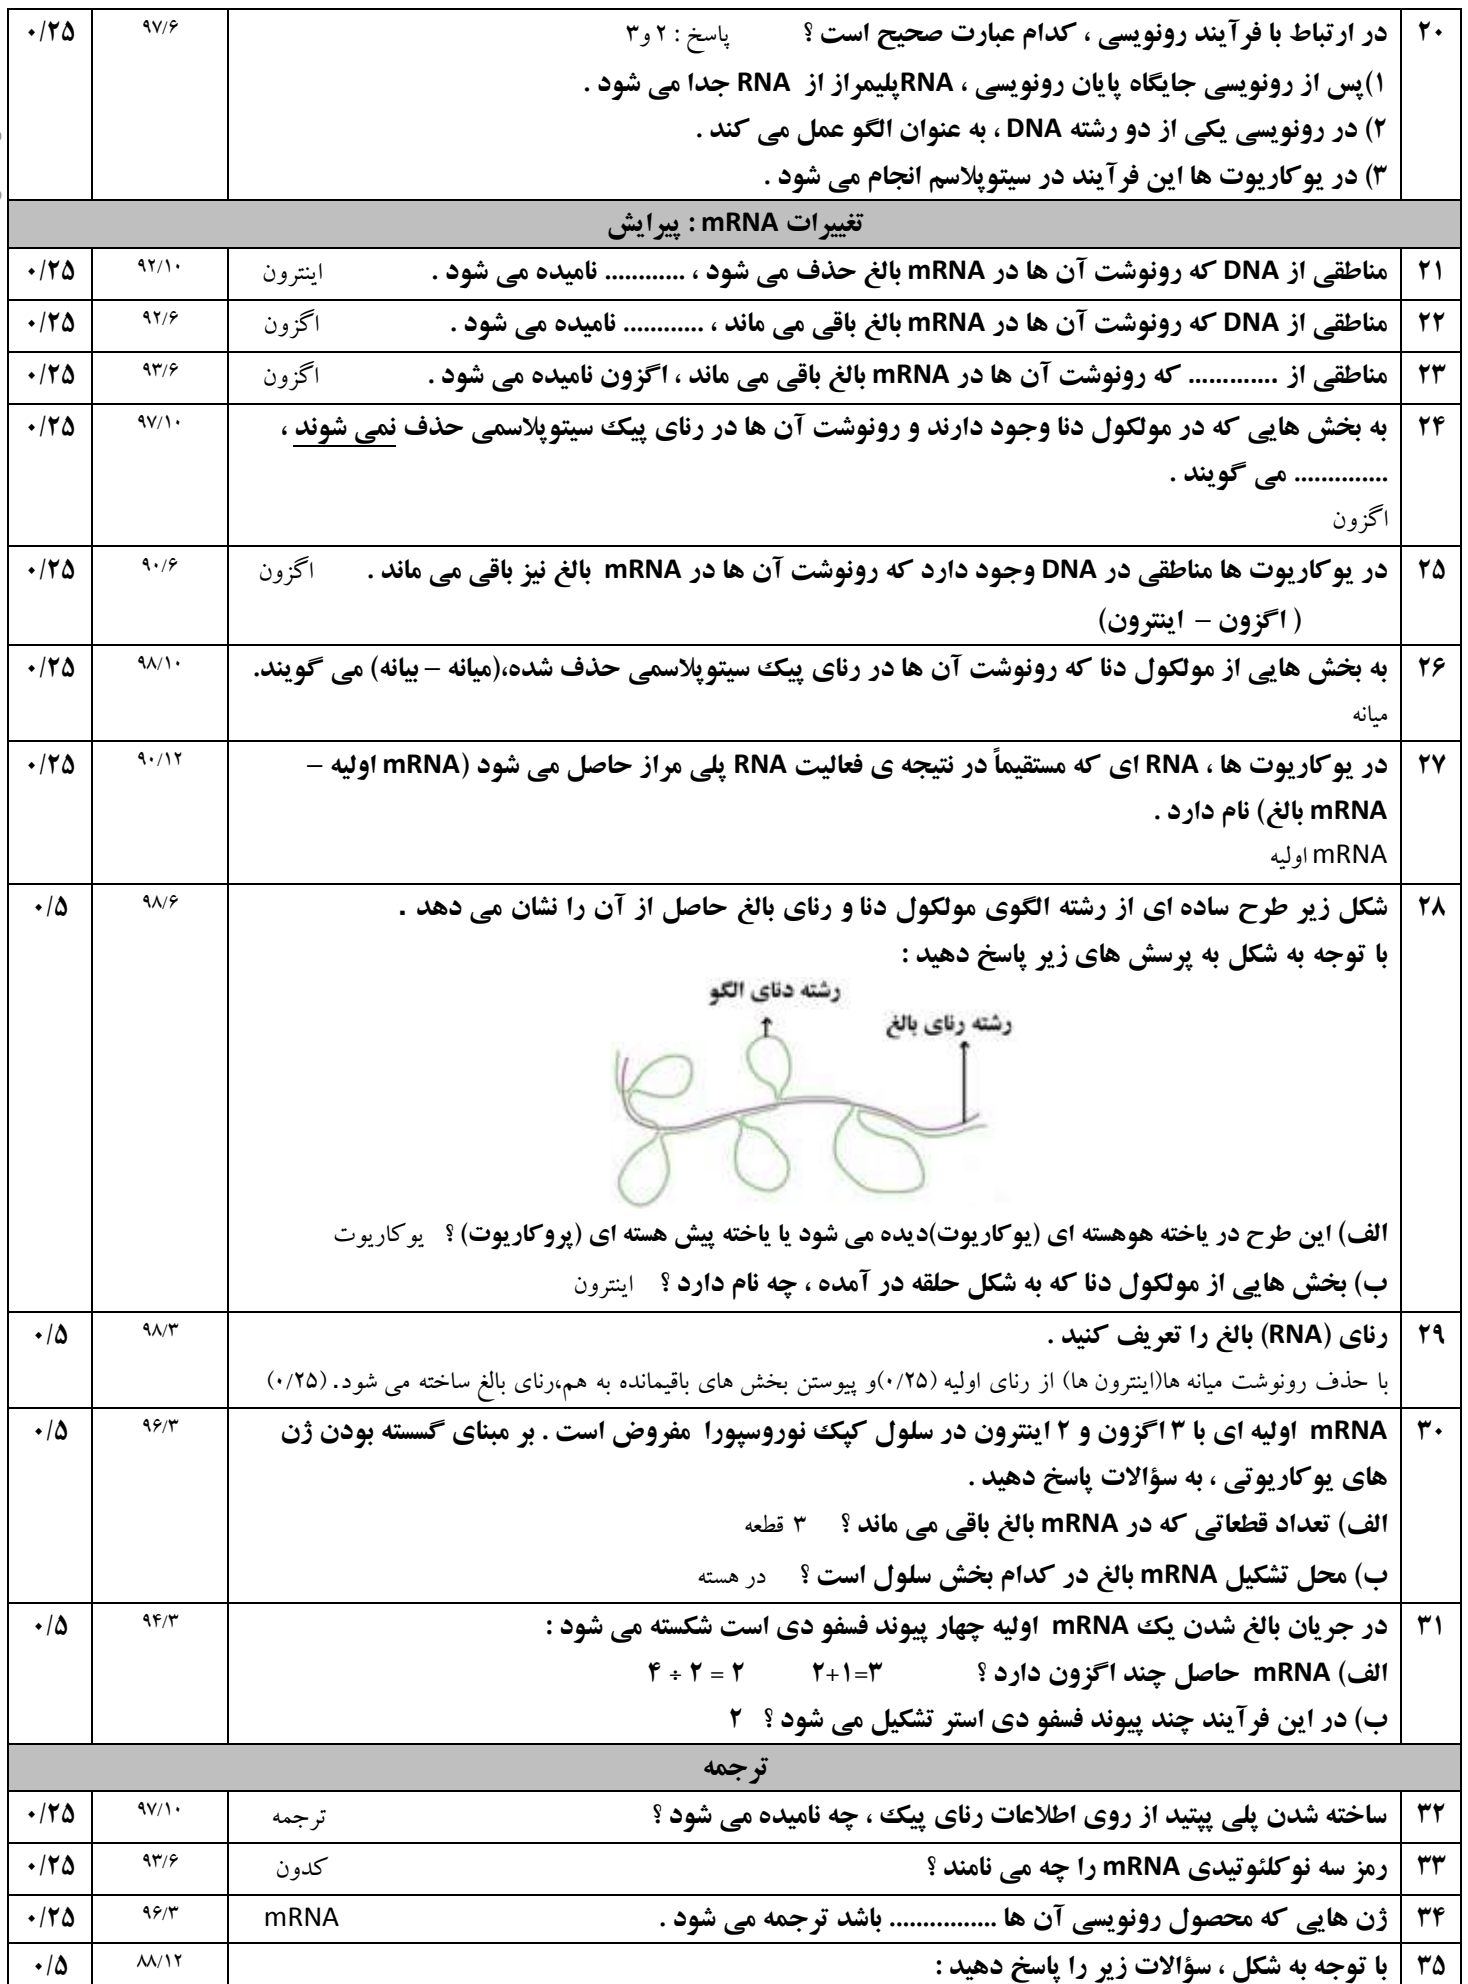 ۲۰ در ارتباط با فرآیند رونویسی ، کدام عبارت صحیح است ؟ پاسخ : ۲ و۳ ۹۷/۶ ۰/۲۵
۱)پس از رونویسی جایگاه پایان رونویسی ، RNAپلیمراز از RNA جدا می شود .
۲) در رونویسی یکی از دو رشته DNA ، به عنوان الگو عمل می کند .
۳) در یوکاریوت ها این فرآیند در سیتوپلاسم انجام می شود .
تغییرات mRNA : پیرایش
۲۱ مناطقی از DNA که رونوشت آن ها در mRNA بالغ حذف می شود ، ............ نامیده می شود . اینترون ۹۲/۱۰ ۰/۲۵
۲۲ مناطقی از DNA که رونوشت آن ها در mRNA بالغ باقی می ماند ، ............ نامیده می شود . اگزون ۹۲/۶ ۰/۲۵
۲۳ مناطقی از ............. که رونوشت آن ها در mRNA بالغ باقی می ماند ، اگزون نامیده می شود . اگزون ۹۳/۶ ۰/۲۵
۲۴ به بخش هایی که در مولکول دنا وجود دارند و رونوشت آن ها در رنای پیک سیتوپلاسمی حذف نمی شوند ، ۹۷/۱۰ ۰/۲۵
.............. می گویند .
اگزون
۲۵ در یوکاریوت ها مناطقی در DNA وجود دارد که رونوشت آن ها در mRNA بالغ نیز باقی می ماند . اگزون ۹۰/۶ ۰/۲۵
( اگزون – اینترون)
۲۶ به بخش هایی از مولکول دنا که رونوشت آن ها در رنای پیک سیتوپلاسمی حذف شده،(میانه – بیانه) می گویند. ۹۸/۱۰ ۰/۲۵
میانه
۲۷ در یوکاریوت ها ، RNA ای که مستقیماً در نتیجه ی فعالیت RNA پلی مراز حاصل می شود (mRNA اولیه – ۹۰/۱۲ ۰/۲۵
mRNA بالغ) نام دارد .
mRNA اولیه
۲۸ شکل زیر طرح ساده ای از رشته الگوی مولکول دنا و رنای بالغ حاصل از آن را نشان می دهد . ۹۸/۶ ۰/۵
با توجه به شکل به پرسش های زیر پاسخ دهید :
رشته دنای الگو
رشته رنای بالغ
الف) این طرح در یاخته هوهسته ای (یوکاریوت)دیده می شود یا یاخته پیش هسته ای (پروکاریوت) ؟ یوکاریوت
ب) بخش هایی از مولکول دنا که به شکل حلقه در آمده ، چه نام دارد ؟ اینترون
۲۹ رنای (RNA) بالغ را تعریف کنید . ۹۸/۳ ۰/۵
با حذف رونوشت میانه ها(اینترون ها) از رنای اولیه (۰/۲۵)و پیوستن بخش های باقیمانده به هم،رنای بالغ ساخته می شود. (۰/۲۵)
۳۰ mRNA اولیه ای با ۳ اگزون و ۲ اینترون در سلول کپک نوروسپورا مفروض است . بر مبنای گسسته بودن ژن ۹۶/۳ ۰/۵
های یوکاریوتی ، به سؤالات پاسخ دهید .
الف) تعداد قطعاتی که در mRNA بالغ باقی می ماند ؟ ۳ قطعه
ب) محل تشکیل mRNA بالغ در کدام بخش سلول است ؟ در هسته
۳۱ در جریان بالغ شدن یک mRNA اولیه چهار پیوند فسفو دی است شکسته می شود : ۹۴/۳ ۰/۵
الف) mRNA حاصل چند اگزون دارد ؟ ۲+۱=۳ ۴ ÷ ۲ = ۲
ب) در این فرآیند چند پیوند فسفو دی استر تشکیل می شود ؟ ۲
ترجمه
۳۲ ساخته شدن پلی پپتید از روی اطلاعات رنای پیک ، چه نامیده می شود ؟ ترجمه ۹۷/۱۰ ۰/۲۵
۳۳ رمز سه نوکلئوتیدی mRNA را چه می نامند ؟ کدون ۹۳/۶ ۰/۲۵
۳۴ ژن هایی که محصول رونویسی آن ها ................ باشد ترجمه می شود . mRNA ۹۶/۳ ۰/۲۵
۳۵ با توجه به شکل ، سؤالات زیر را پاسخ دهید : ۸۸/۱۲ ۰/۵